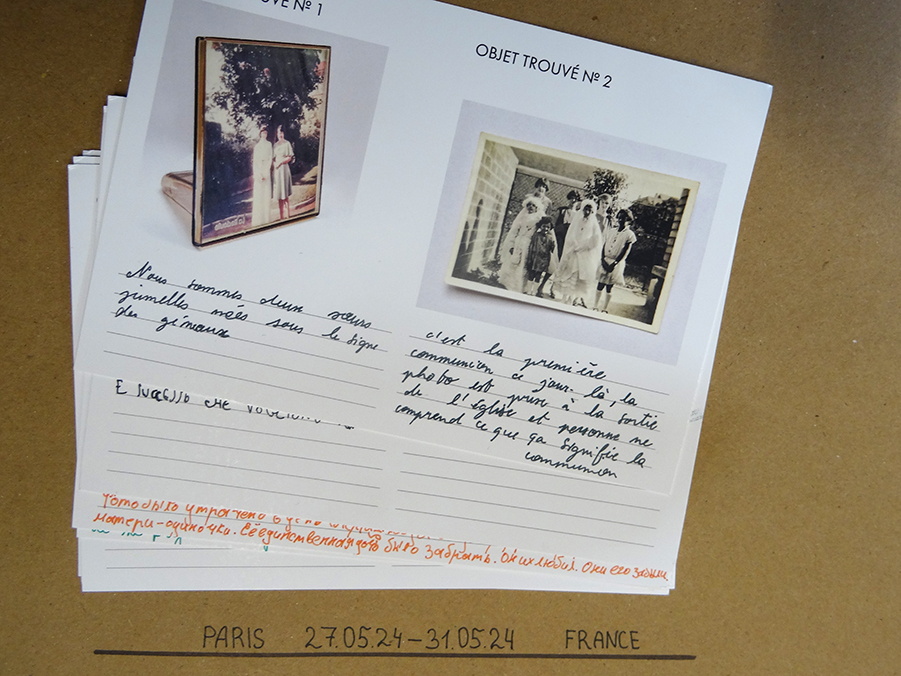 UVÉ Nº 1
OBJET TROUVÉ Nº 2
Nous sommes deux sœurs
jumelles nées sous le signe
des gémeaux
c'est la première
communion ce jour là, la
photo est prise à la sortie
de l'église et personne ne
comprend ce que ça signifie la
communion
E successo che
матери-одиночки. Её единственная было забрать. Он их любил. Они его забыли.
PARIS 27.05.24-31.05.24 FRANCE